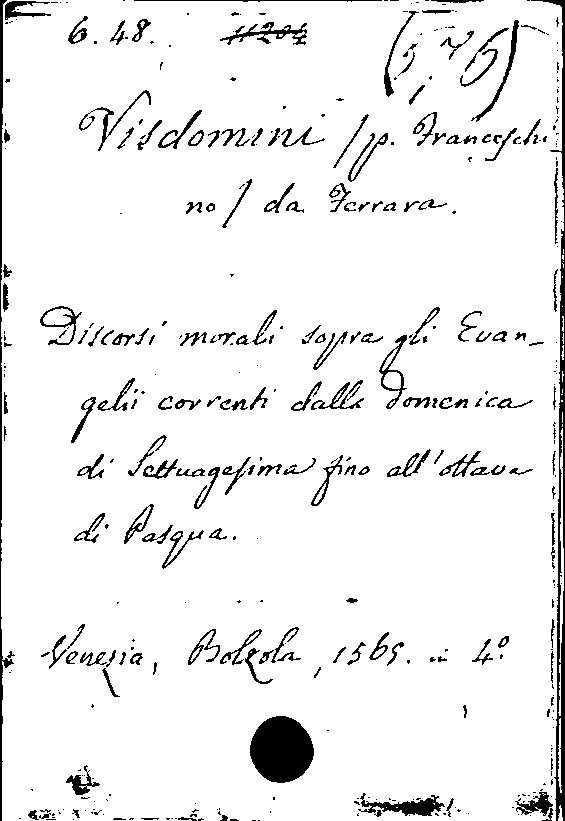 6. 48. 11204 (5 76)
Visdomini /p. Franceschi
no/ da Ferrara.
Discorsi morali sopra gli Evan-
gelii correnti dalla Domenica
di Settuagesima fino all'ottava
di Pasqua.
Venezia, Bolzola, 1565. in 4.º